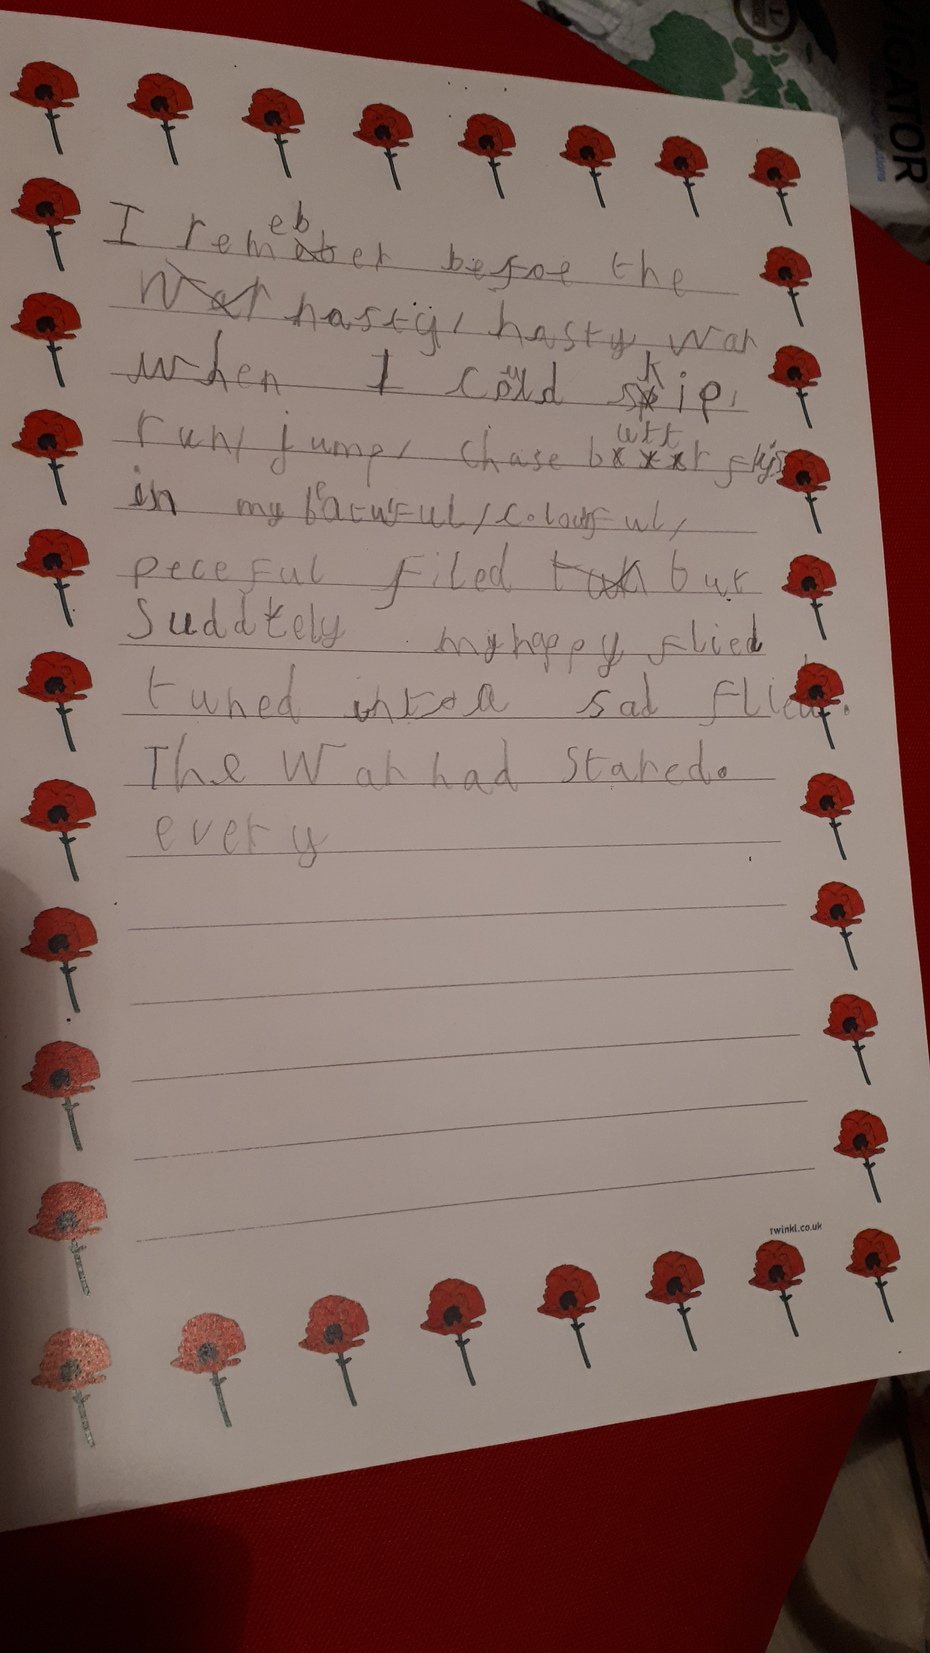 IGATOR
I remebber befoe the
hasty, hasty war
when I could skip,
run, jump, chase butterflys
in my colourful,
peceful filed but
Suddtely my happy flied
tuned into a sad flied.
The War had stared.
every
twinkl.co.uk